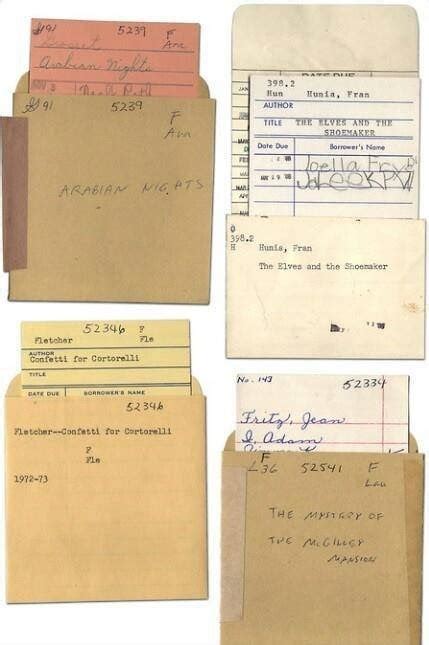 $1.91 5239 F
Arabian Nights
NOV 3
$1.91 5239 F
ARABIAN NIGHTS
DATE DUE
398.2
Hun Hunia, Fran
AUTHOR
TITLE THE ELVES AND THE
SHOEMAKER
Date Due Borrower's Name
Joella Fry
398.2
H Hunia, Fran
The Elves and the Shoemaker
52346 F
Fletcher Fle
AUTHOR
Confetti for Cortorelli
TITLE
DATE DUE BORROWER'S NAME
52346
Fletcher--Confetti for Cortorelli
F
Fle
1972-73
No. 143 52334
Fritz, Jean
I, Adam
F
L36 52541 F
Lau
THE MYSTERY OF
THE McGILLEY
MANSION